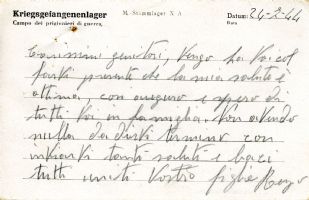 Kriegsgefangenenlager M. Stammlager X A Datum: 24-2-44
Campo dei prigionieri di guerra, Data
Carissimi genitori, Vengo da Voi col
farvi presente che la mia salute è
ottima, con auguro e spero di
tutti Voi in famiglia. Non avendo
nulla da dirvi termino con
inviarvi tanti saluti e baci
tutti uniti Vostro figlio Renzo